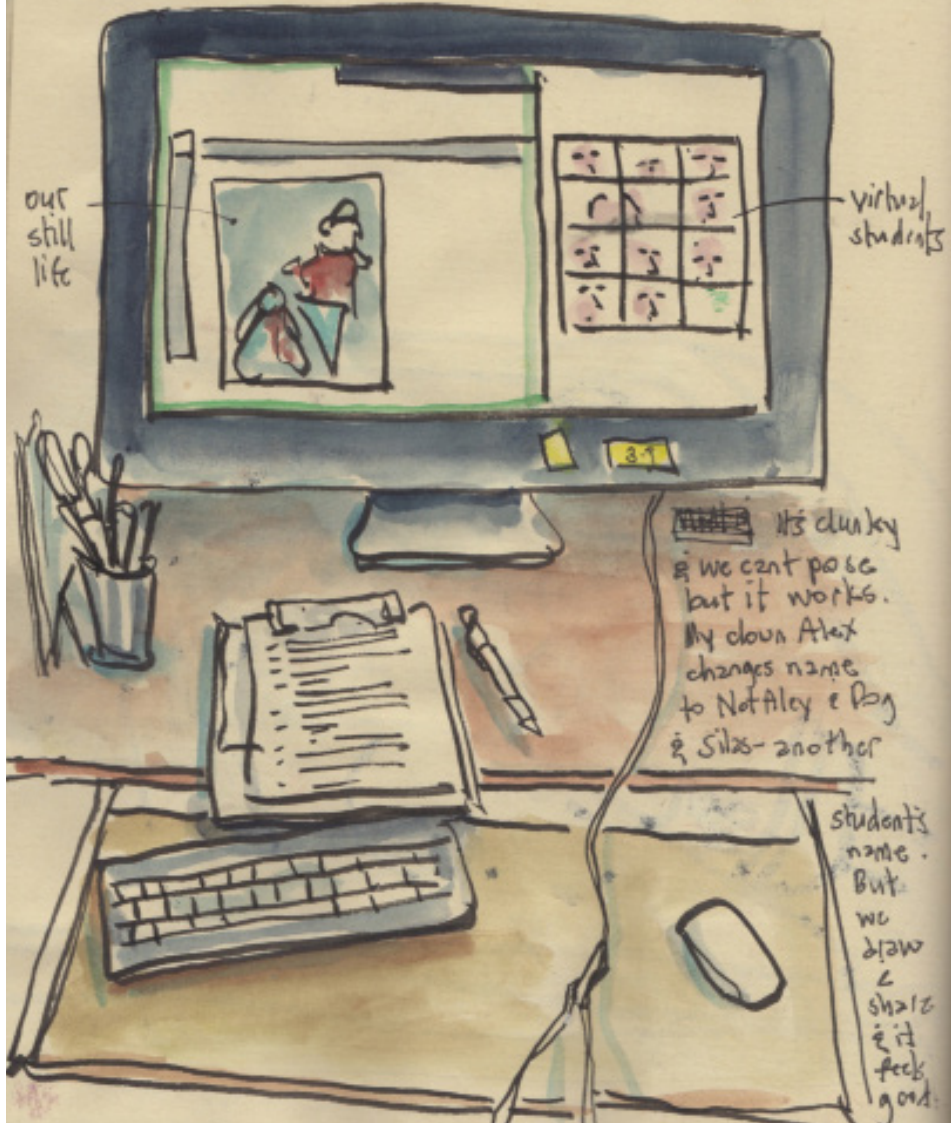 our
still
life
virtual
students
3-9
It's clunky
& we cant pose
but it works.
My clown Alex
changes name
to NotAlex & Dog
& Silas - another
student's
name.
But
we
draw
&
share
& it
feels
good.